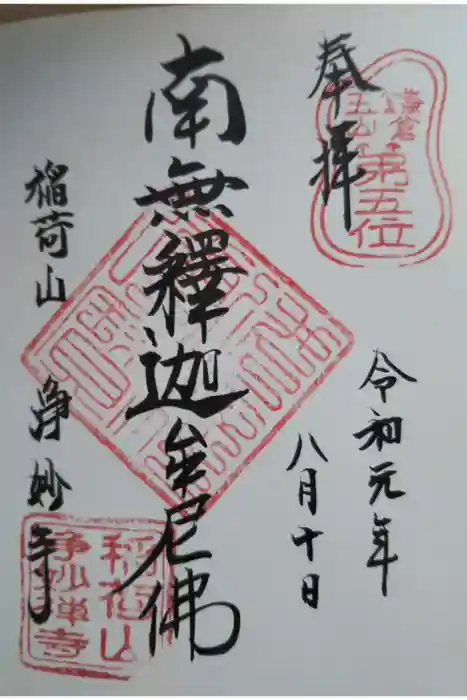 奉拝
鎌倉
五山
第五位
令和元年
八月十日
南無釋迦牟尼佛
稲荷山 浄妙寺
稲荷山
浄妙禅寺